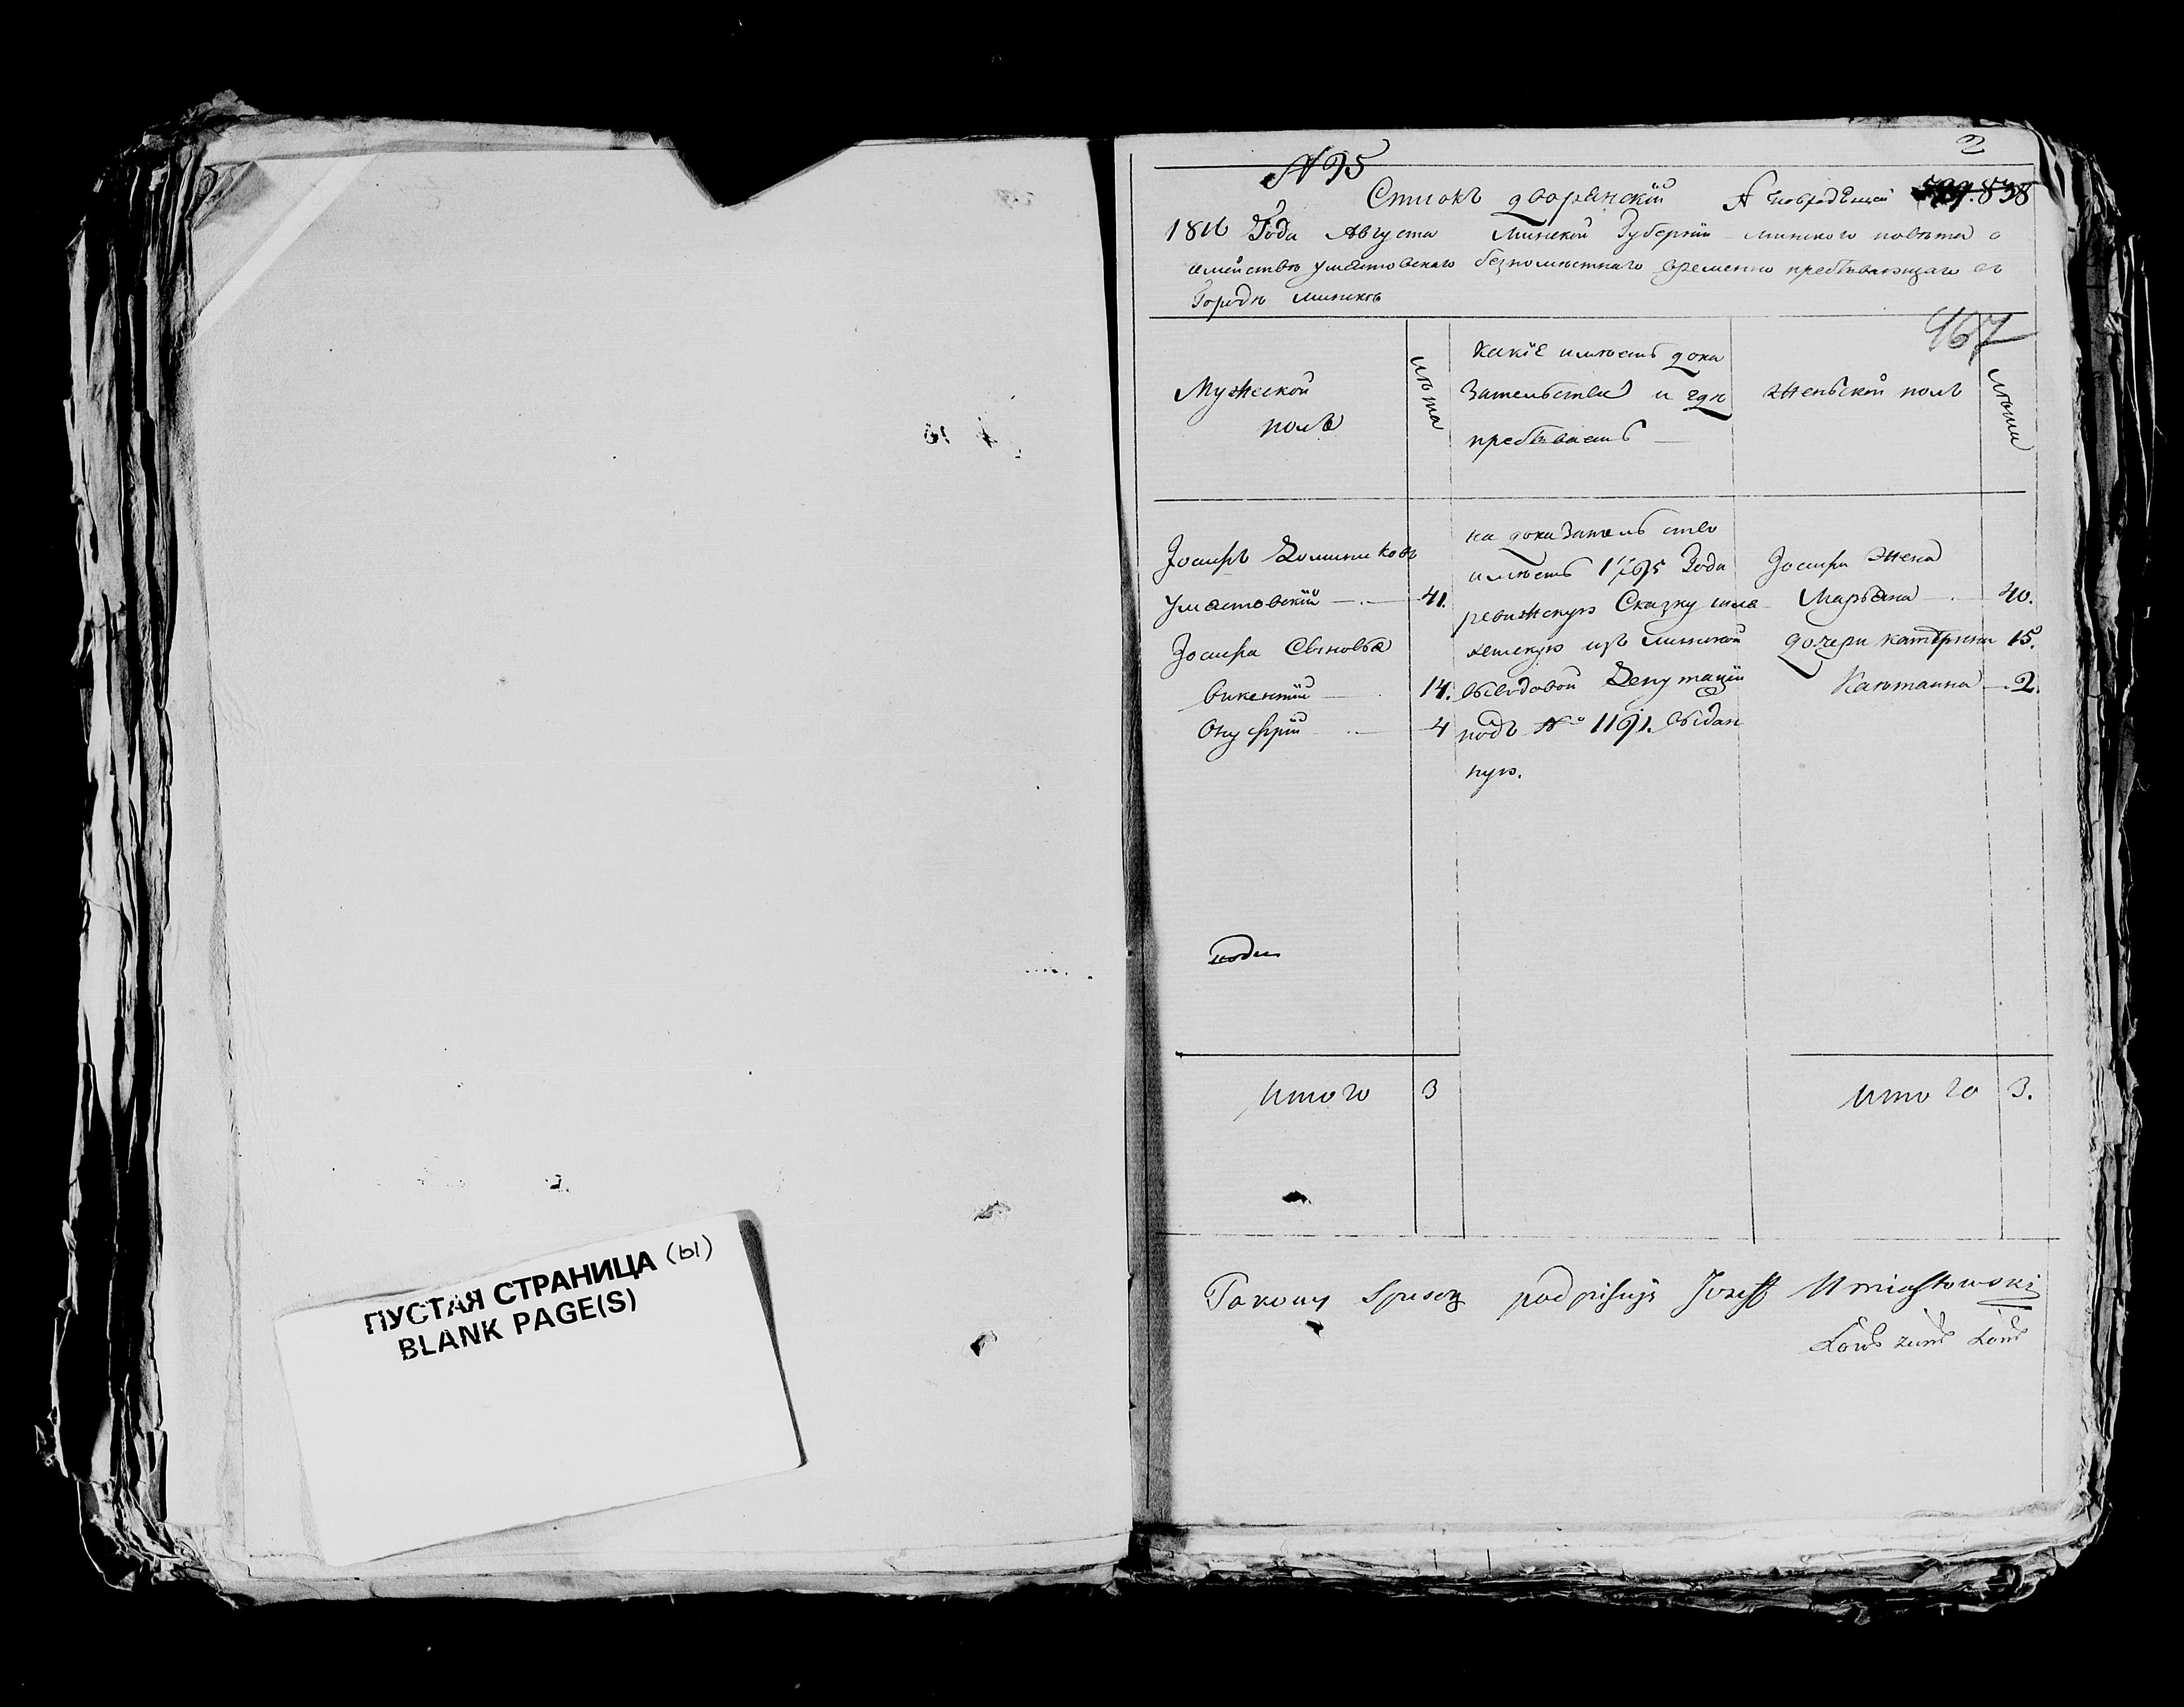 ПУСТАЯ СТРАНИЦА (ы)
BLANK PAGE(S)
2
N 95
Списокъ дворянскій
838
1816 Года Августа Минской Губерніи минского повѣта о
семействѣ умястовскаго безпоместнаго временно пребывающаго въ
Городѣ минскѣ
467
Мужеской
полъ
лѣта
какіе имѣетъ дока
зательства и гдѣ
пребываетъ
женьской полъ
лѣта
Іосифъ Доминиковъ
умястовскій 41.
Іосифа Сыновья
викентій 14.
Онуфрій 4
на доказатель ство
имѣетъ 1795 Года
ревижскую Сказку шля
хетскую изъ минской
выводовой Депутаціи
подъ No 1191. выдан
ную.
Іосифа жена
Марьяна 40.
дочери катерина 15.
Каетанна 2.
Итого 3
Итого 3.
Takowy Spisek podpisuję Jozeff Umiastowski